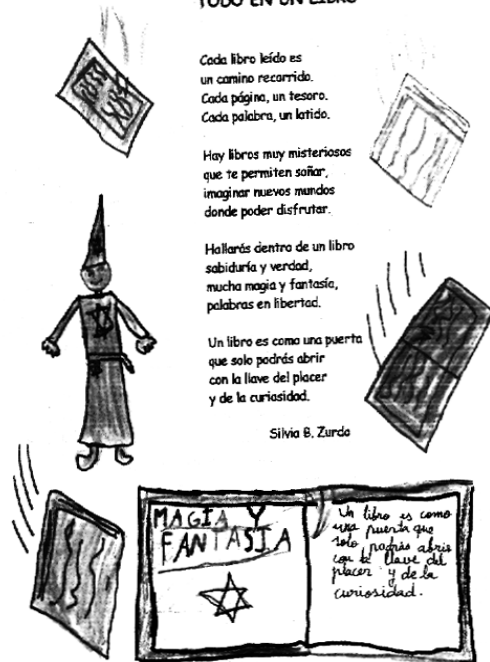 TODO EN UN LIBRO
Cada libro leído es
un camino recorrido.
Cada página, un tesoro.
Cada palabra, un latido.
Hay libros muy misteriosos
que te permiten soñar,
imaginar nuevos mundos
donde poder disfrutar.
Hallarás dentro de un libro
sabiduría y verdad,
mucha magia y fantasía,
palabras en libertad.
Un libro es como una puerta
que solo podrás abrir
con la llave del placer
y de la curiosidad.
Silvia B. Zurdo
MAGIA Y
FANTASIA
Un libro es como
una puerta que
solo podrás abrir
con la llave del
placer y de la
curiosidad.